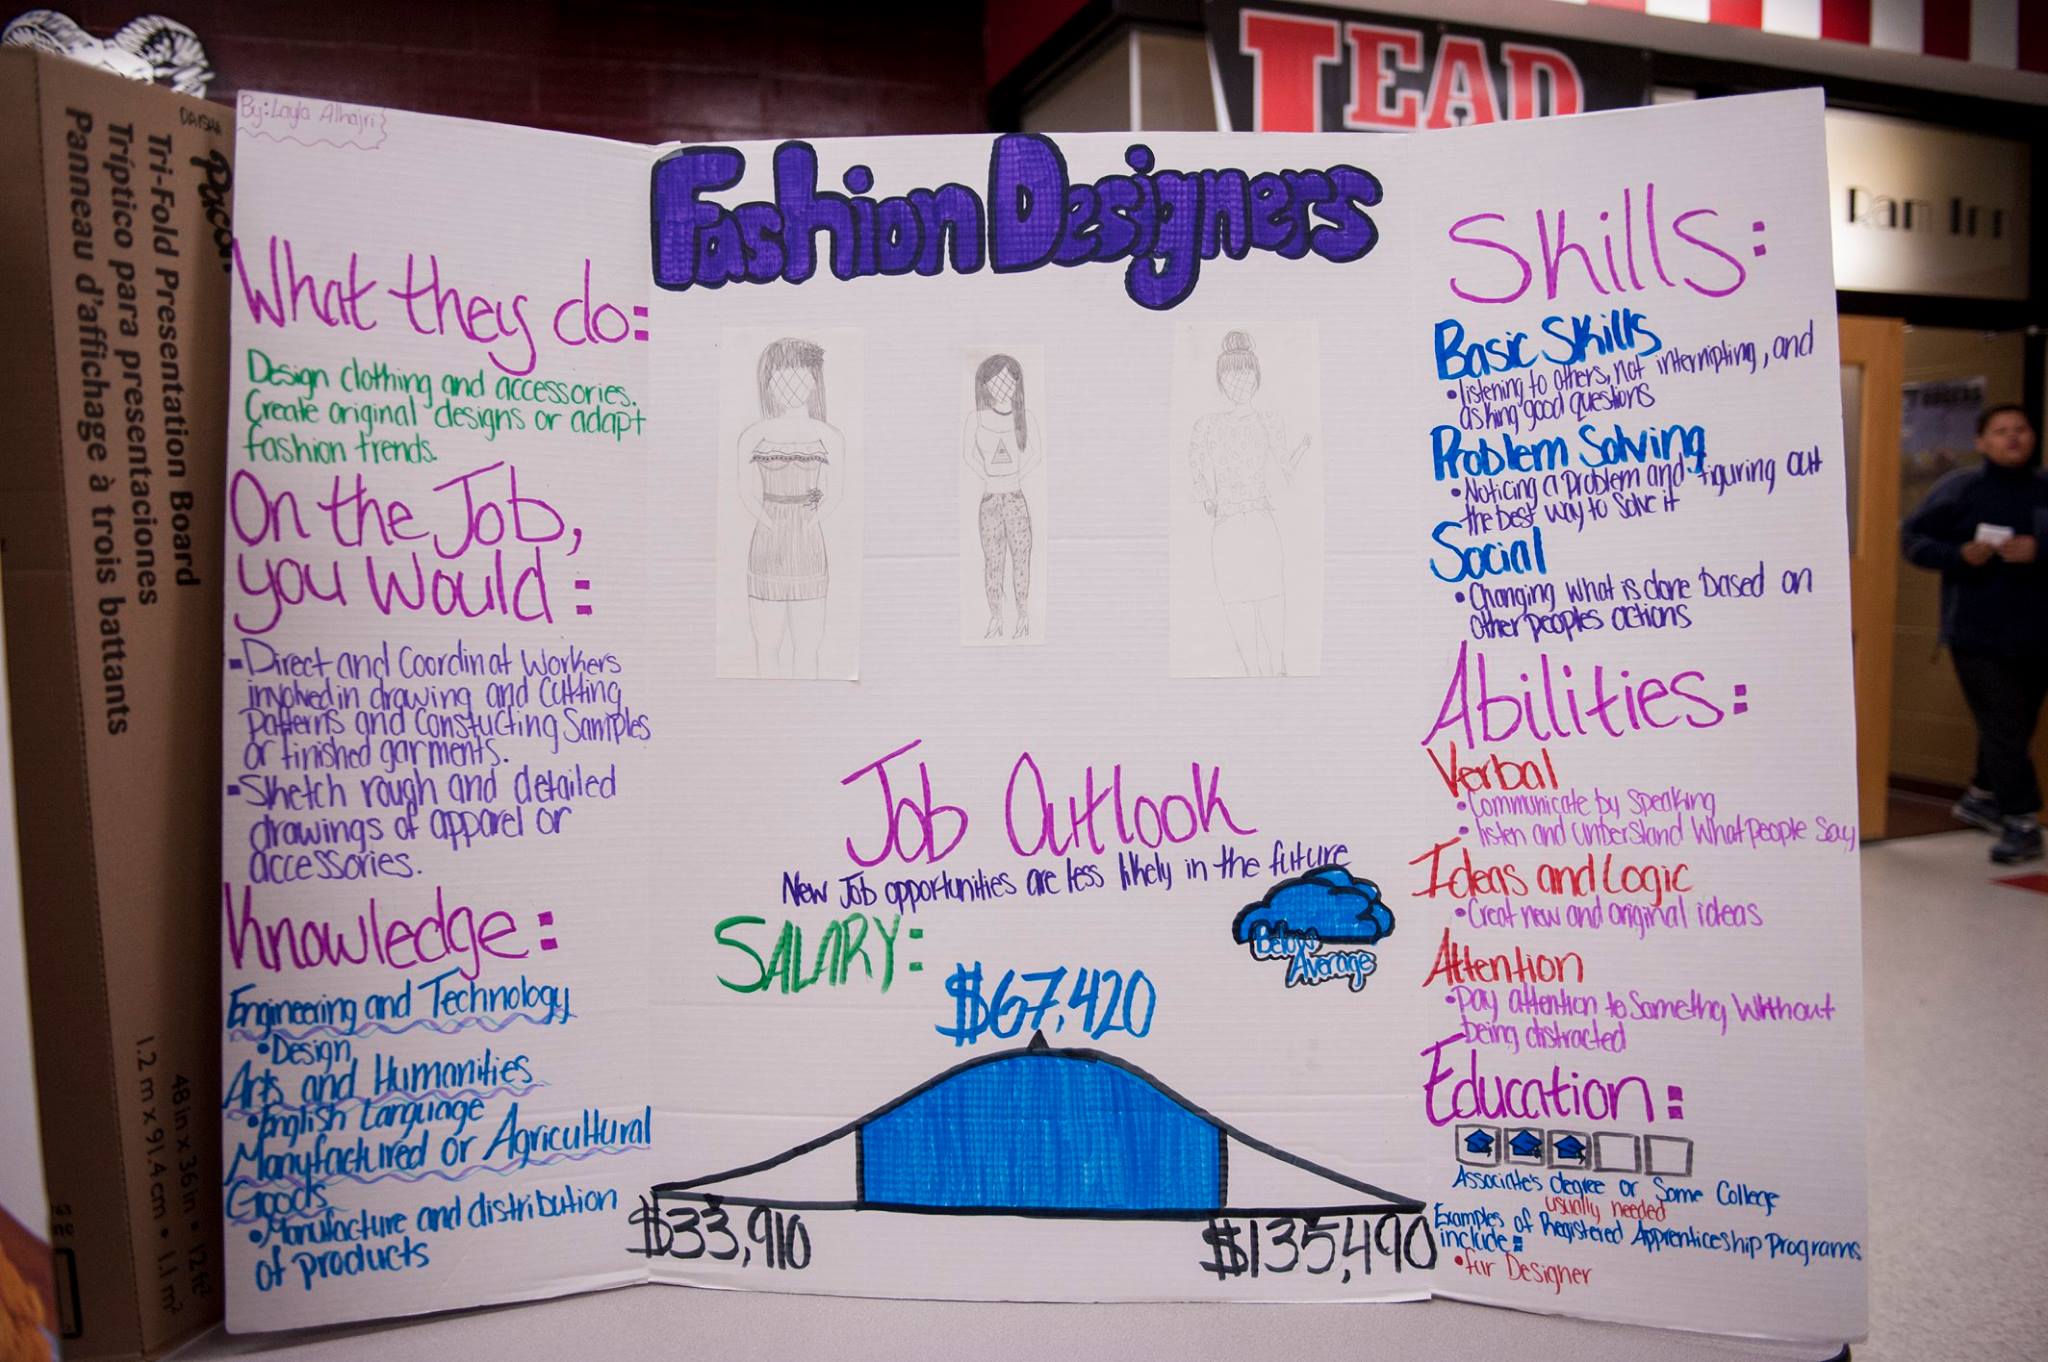 By: Layla Alhajri
What they do:
Design clothing and accessories.
Create original designs or adapt
fashion trends.
On the Job,
you Would:
Direct and Coordinat Workers
involved in drawing and cutting
patterns and constucting Samples
or finished garments.
Sketch rough and detailed
drawings of apparel or
accessories.
Knowledge:
Engineering and Technology
•Design
Arts and Humanities
•English Language
Manufactured or Agricultural
Goods
•Manufacture and distribution
of products
Fashion Designers
Job Outlook
New Job opportunities are less likely in the future
Below
Average
SALARY:
$67,420
$33,910
$135,490
Skills:
Basic Skills
•listening to others, not interrupting, and
asking good questions
Problem Solving
•Noticing a problem and figuring out
the best way to solve it
Social
•Changing what is done based on
other peoples actions
Abilities:
Verbal
•Communicate by speaking
•listen and understand what people say
Ideas and Logic
•Creat new and original ideas
Attention
•Pay attention to somethg without
being distracted
Education:
Associate's degree or Some College
usually needed
Examples of Registered Apprenticeship Programs
include:
•Fur Designer
LEAD
Ram Inn
DAISHA
Pacon
Tri-Fold Presentation Board
Tríptico para presentaciones
Panneau d'affichage à trois battants
48 in x 36 in • 12 ft²
1.2 m x 91.4 cm • 1.1 m²